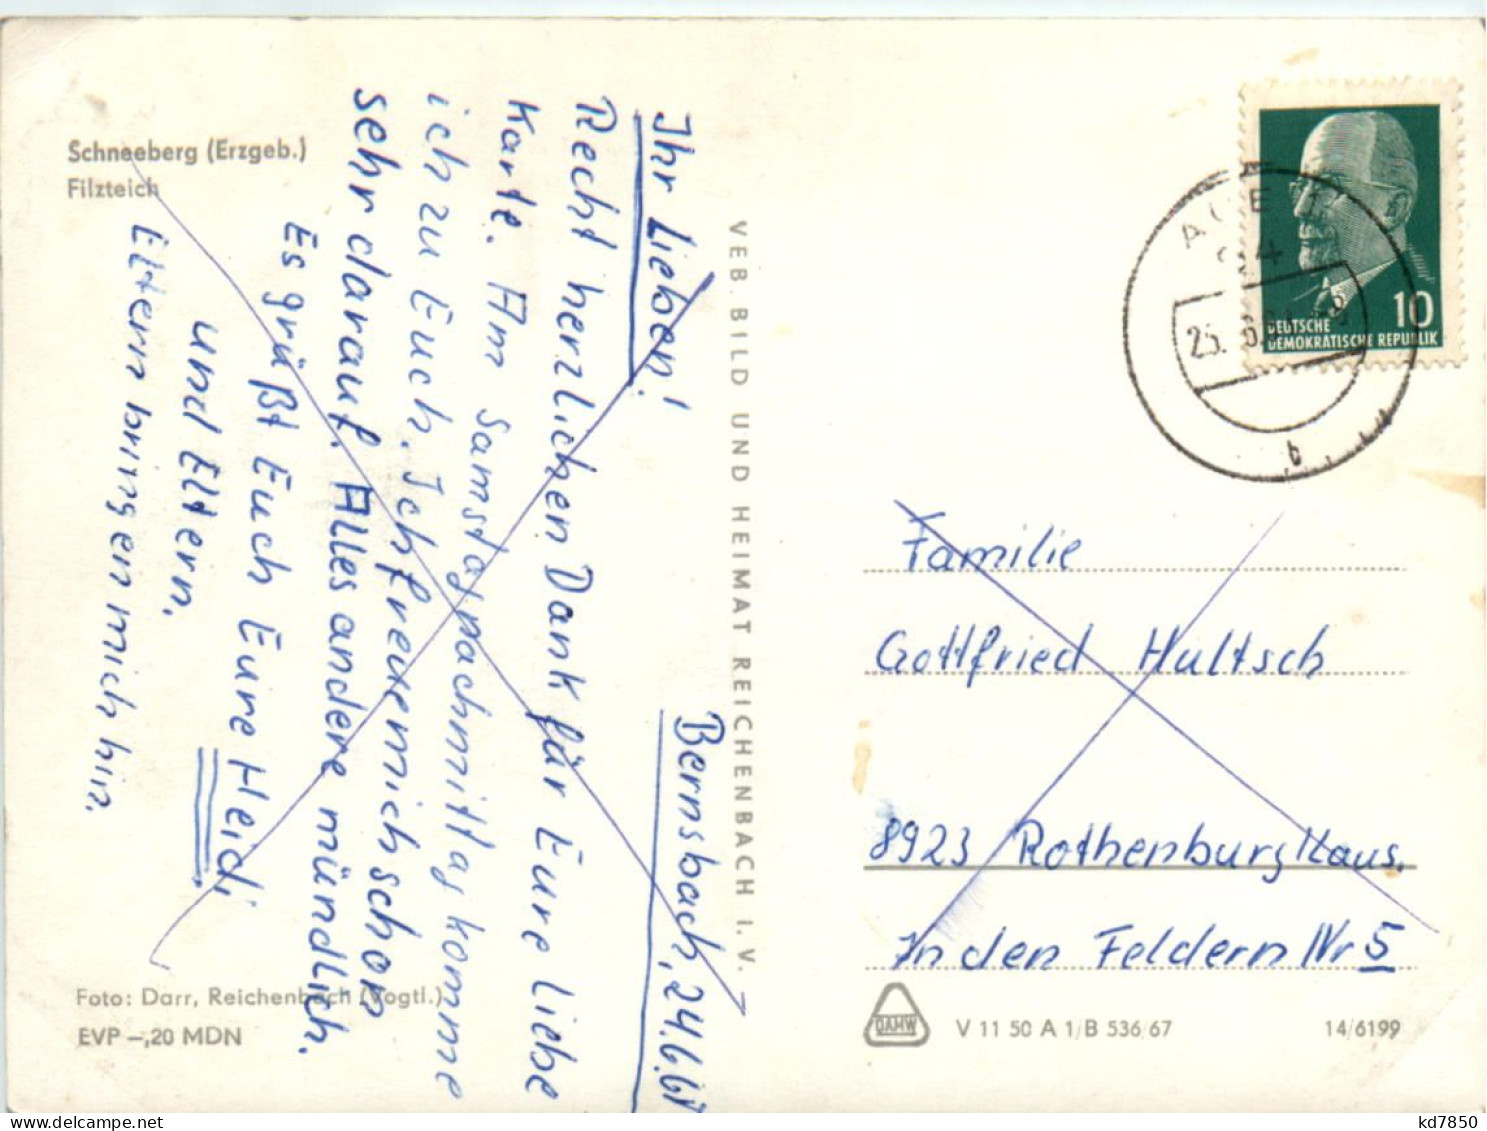 Schneeberg (Erzgeb.)
Filzteich
Bernsbach, 24.6.
Ihr Lieben!
Recht herzlichen Dank für Eure liebe
Karte. Am Samstagnachmittag komme
ich zu Euch. Ich freue mich schon
sehr darauf. Alles andere mündlich.
Es grüßt Euch Eure Heidi
und Eltern.
Eltern bringen mich hin.
Foto: Darr, Reichenbach (Vogtl.)
EVP -,20 MDN
VEB. BILD UND HEIMAT REICHENBACH I. V.
10
DEUTSCHE
DEMOKRATISCHE REPUBLIK
AUE
25. 6.
b
Familie
Gottfried Hultsch
8923 Rothenburg/Laus.
In den Feldern Nr 5
DAHW
V 11 50 A 1/B 536/67
14/6199
www.delcampe.net
kd7850